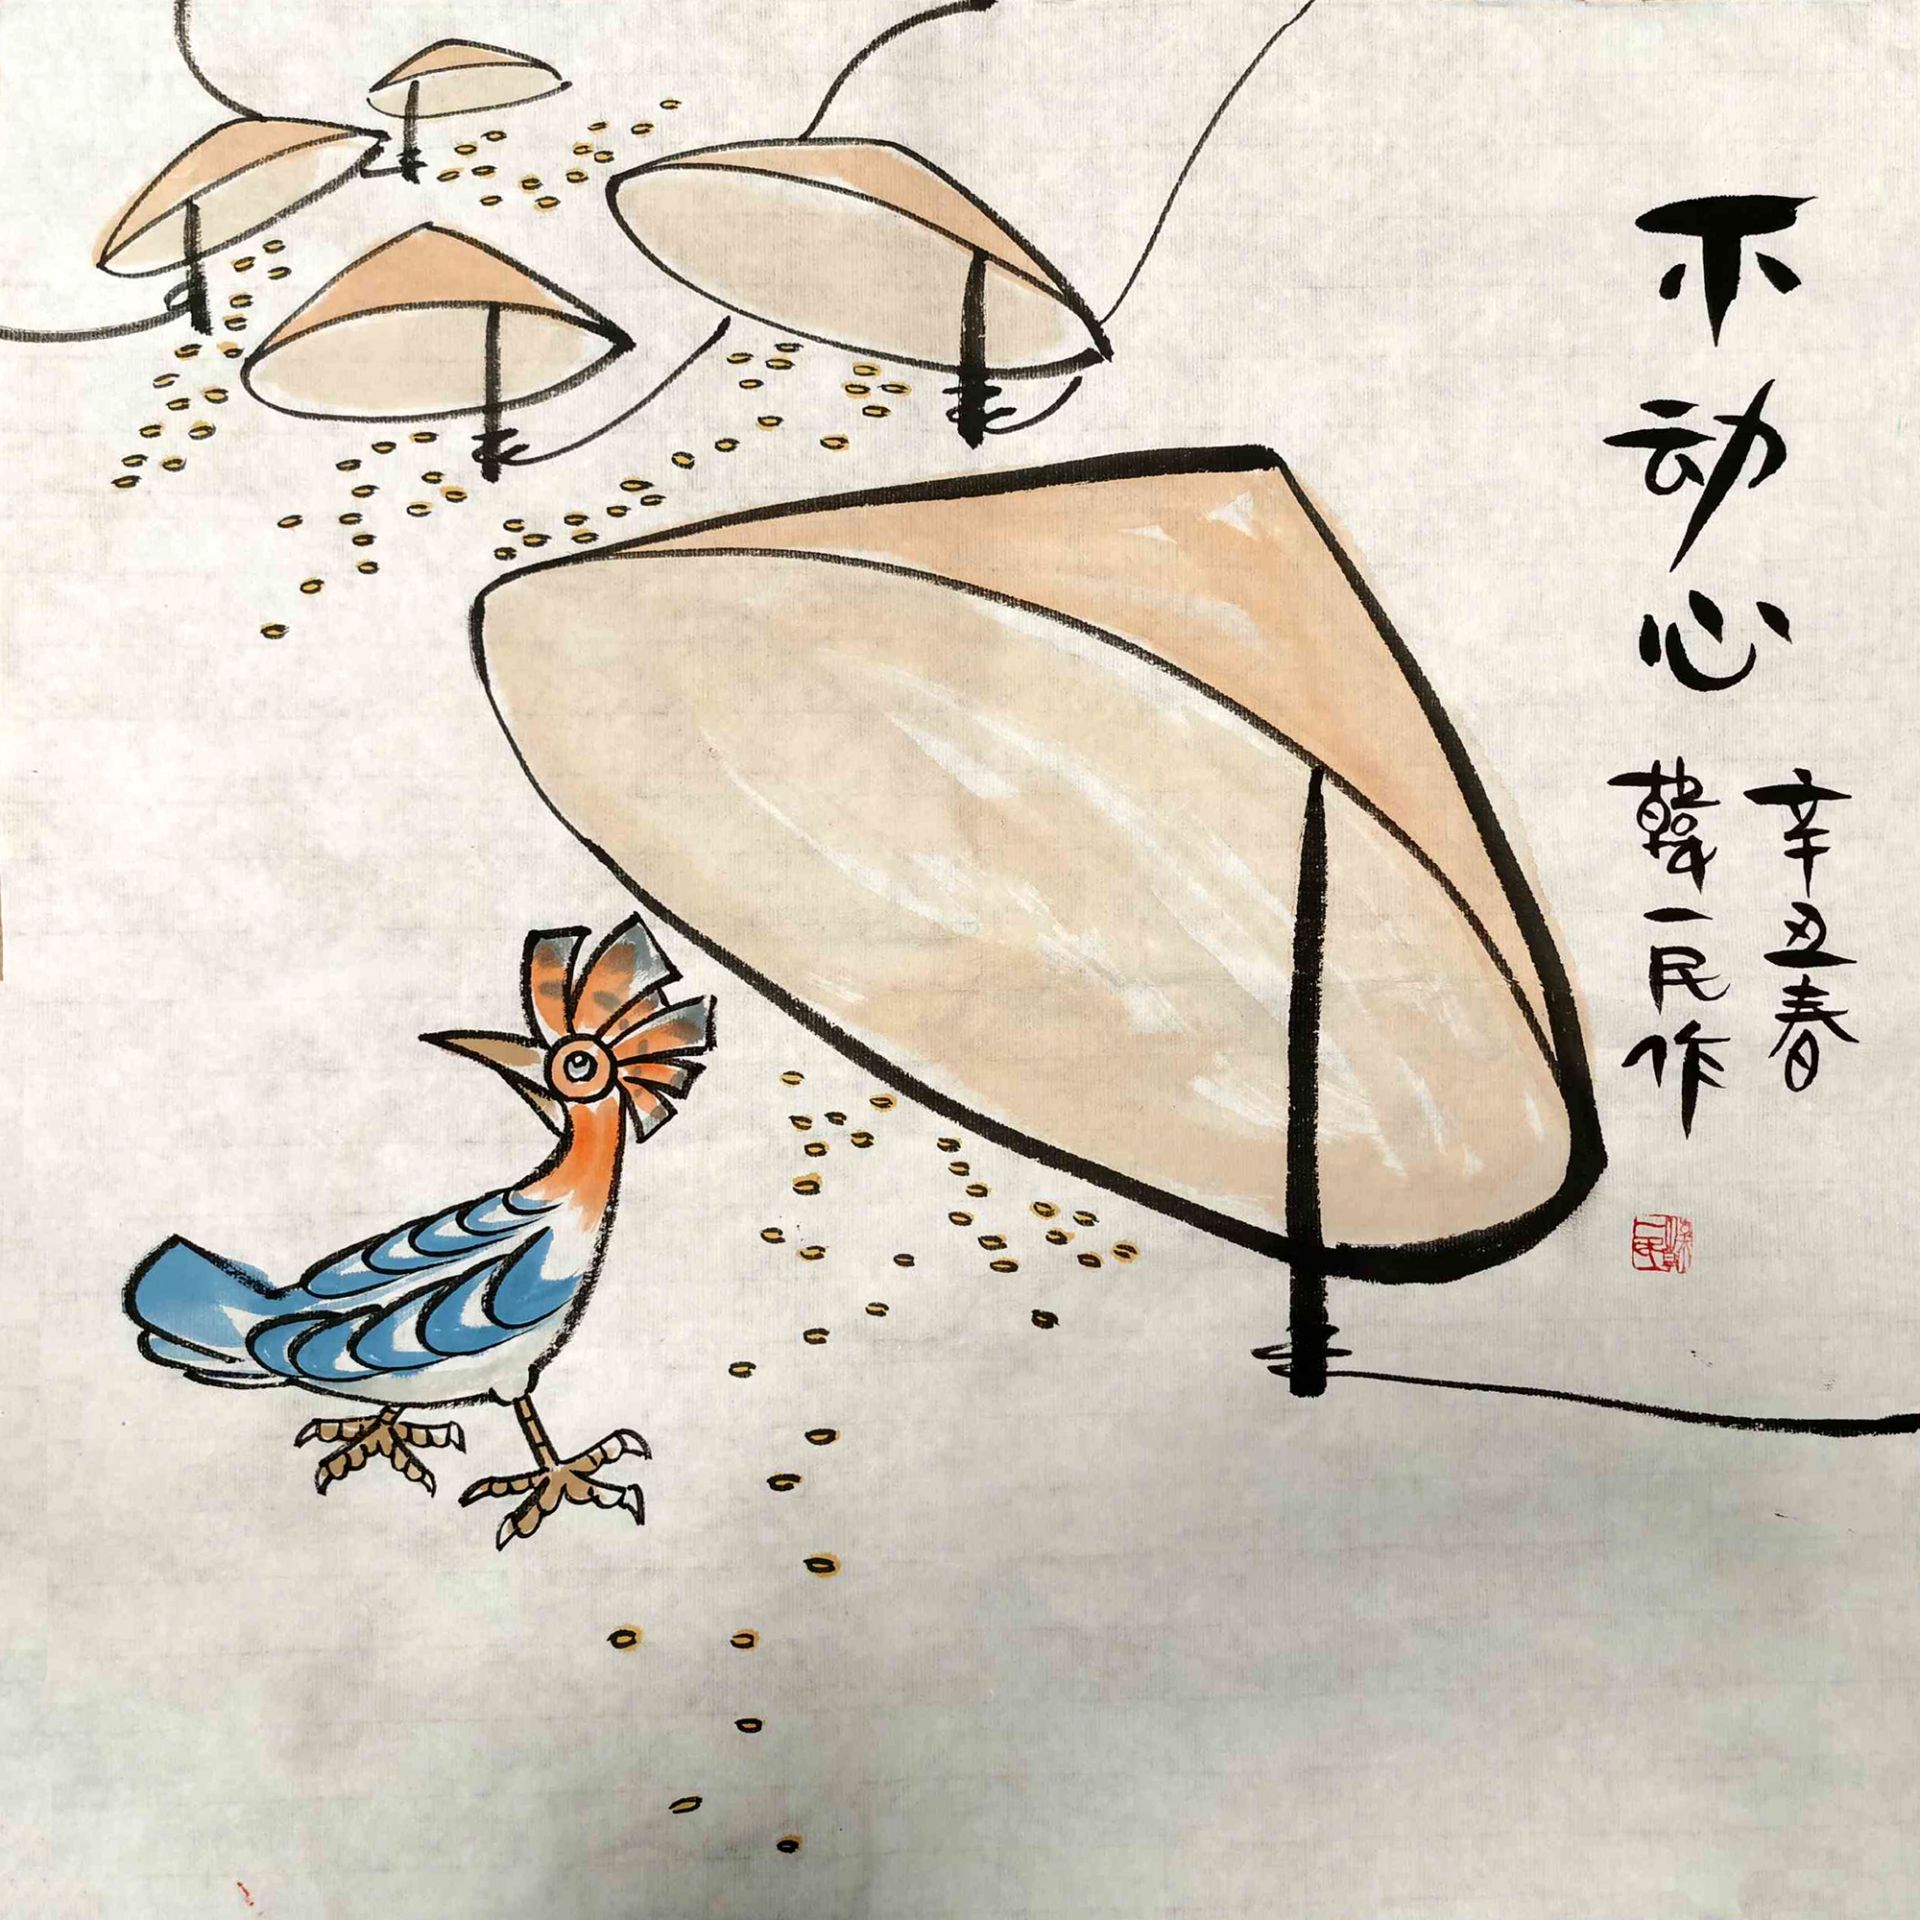 不动心
辛丑春
韓一民作